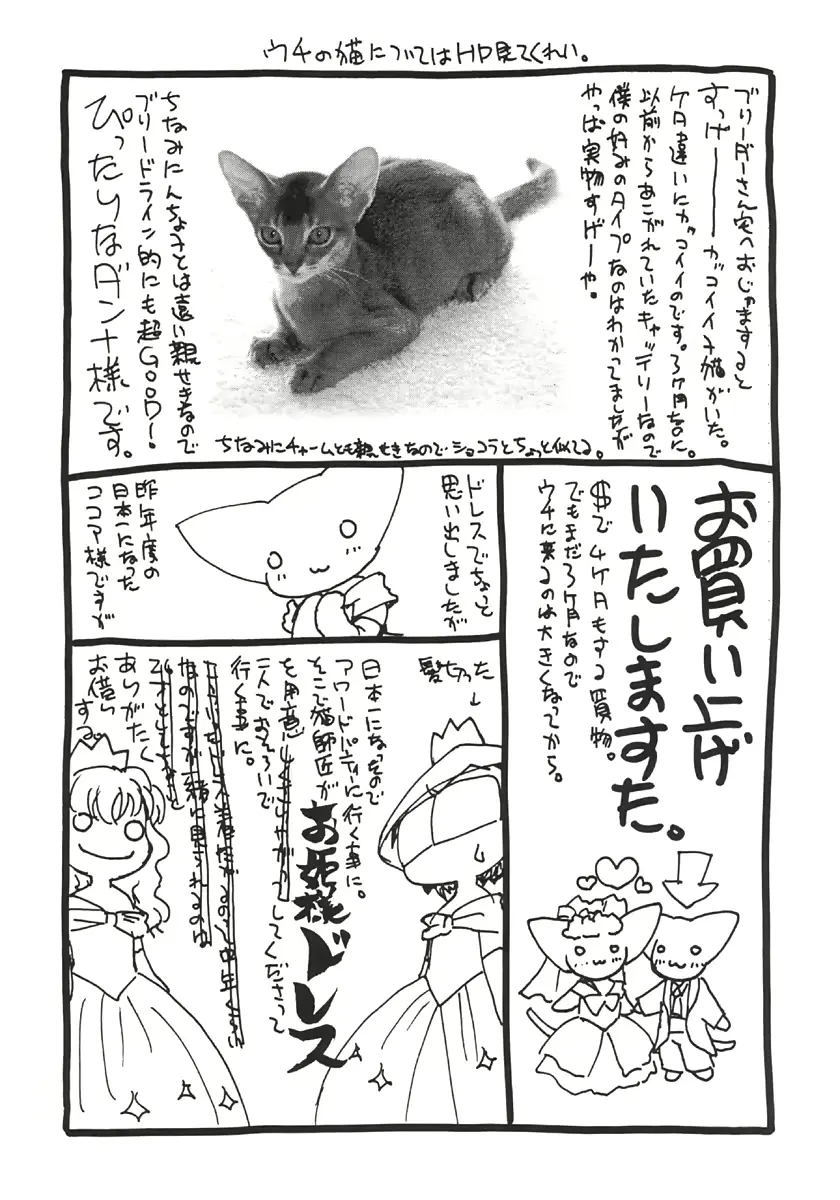 ウチの猫についてはHP見てくれい。
ブリーダーさん宅へおじゃますると
すっげーーーガッコイイ子猫がいた。
ケタ違いにガッコイイのです。3ヶ月なのに。
以前からあこがれていたキャッテリーなので
僕の好みのタイプなのはわかってましたが
やっぱ実物すげーや。
ちなみにんちょ子とは遠い親せきなので
ブリードライン的にも超GOOD!
ぴったりなダンナ様です。
ちなみにチャームとも親せきなのでショコラとちょっと似てる。
お買い上げ
いたしますた。
$で4ケタもする買物。
でもまだ3ヶ月なので
ウチに来るのは大きくなってから。
ドレスでちょっと
思い出しましたが
昨年度の
日本一になった
ココア様ですが
髪切った
↓
日本一になったので
アワードパーティに行く事に。
そこで猫師匠が
お姉様ドレス
を用意しくさりやがってしてくださって
二人でおそろいで
行く事に。
ありがたく
お借りする。